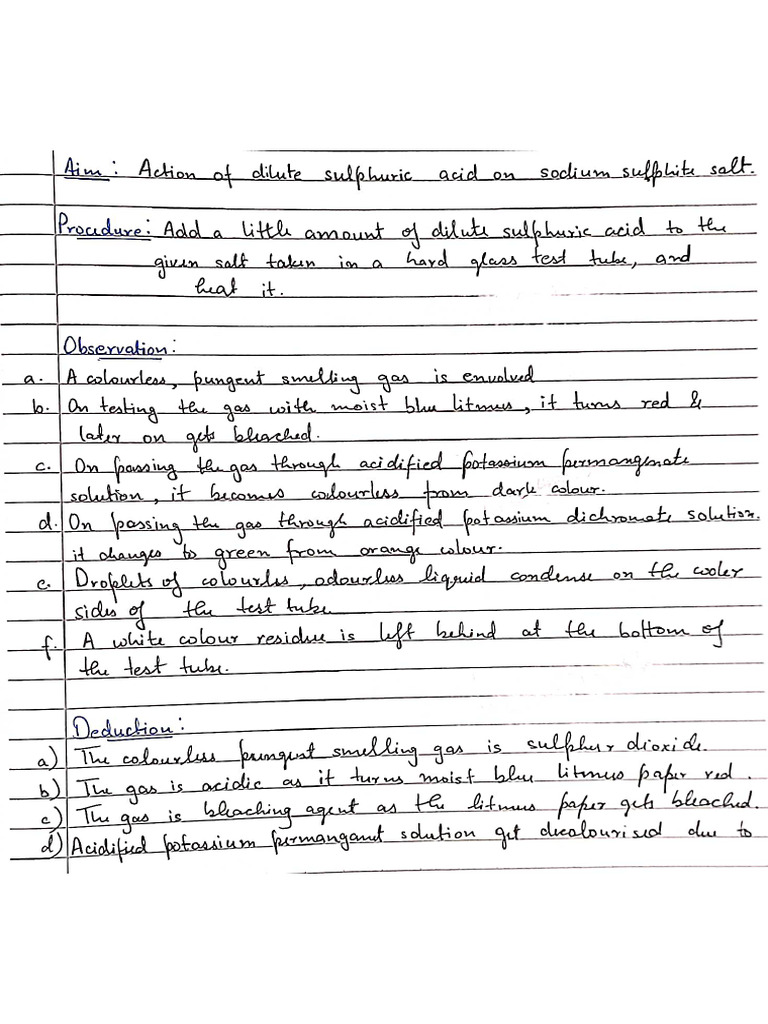 Aim: Action of dilute sulphuric acid on sodium sulphite salt.
Procedure: Add a little amount of dilute sulphuric acid to the
given salt taken in a hard glass test tube, and
heat it.
Observation:
a. A colourless, pungent smelling gas is envolved
b. On testing the gas with moist blue litmus, it turns red &
later on gets bleached.
c. On passing the gas through acidified potassium permangenate
solution, it becomes colourless from dark colour.
d. On passing the gas through acidified potassium dichromate solution.
it changes to green from orange colour.
e. Droplets of colourless, odourless liquid condense on the cooler
sides of the test tube
f. A white colour residue is left behind at the bottom of
the test tube.
Deduction:
a) The colourless pungent smelling gas is sulphur dioxide.
b) The gas is acidic as it turns moist blue litmus paper red.
c) The gas is bleaching agent as the litmus paper gets bleached.
d) Acidified potassium permanganat solution get decolourised due to